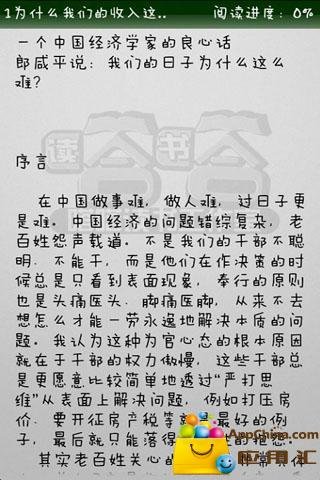 1为什么我们的收入这.. 阅读进度: 0%
一个中国经济学家的良心话
郎咸平说: 我们的日子为什么这么
难?
读书
序言
在中国做事难, 做人难, 过日子更
是难。中国经济的问题错综复杂, 老
百姓怨声载道。不是我们的干部不聪
明. 不能干, 而是他们在作决策的时
候总是只看到表面现象, 奉行的原则
也是头痛医头. 脚痛医脚, 从来不去
想怎么才能一劳永逸地解决本质的问
题。我认为这种为官心态的根本原因
就在于干部的权力傲慢, 这些干部总
是更愿意比较简单地透过“严打思
维”从表面上解决问题, 例如打压房
价. 要开征房产税等就是最好的例
子, 最后就只能落得
其实老百姓关心的 非常具体
AppChina.com
应用汇